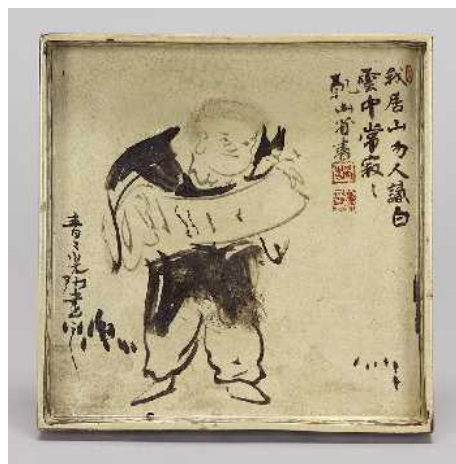 我居山勿人識白
雲中常寂〻
乾山省書
青々光琳畫之